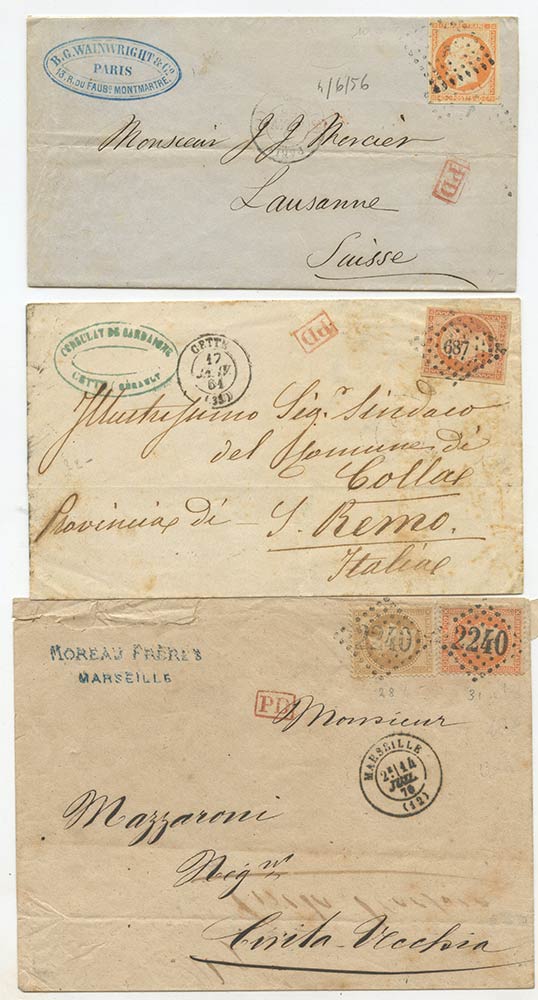 B. G. WAINWRIGHT & Co
PARIS
13, R. DU FAUBG MONTMARTRE
10
4/6/56
Monsieur J J Mercier
PD
Lausanne
Suisse
CONSULAT DE SARDAIGNE
CETTE (HÉRAULT)
CETTE
17
JANV
61
(33)
PD
687
Illustrissimo Sigr Sindaco
del Comune di
Colla
22-
Provincia di S. Remo.
Italia
MOREAU FRÈRES
MARSEILLE
2240
2240
28
31
PD
Monsieur
MARSEILLE
2E/14
JUIL
70
(12)
Mazzaroni
Négnt
Civita-Vecchia